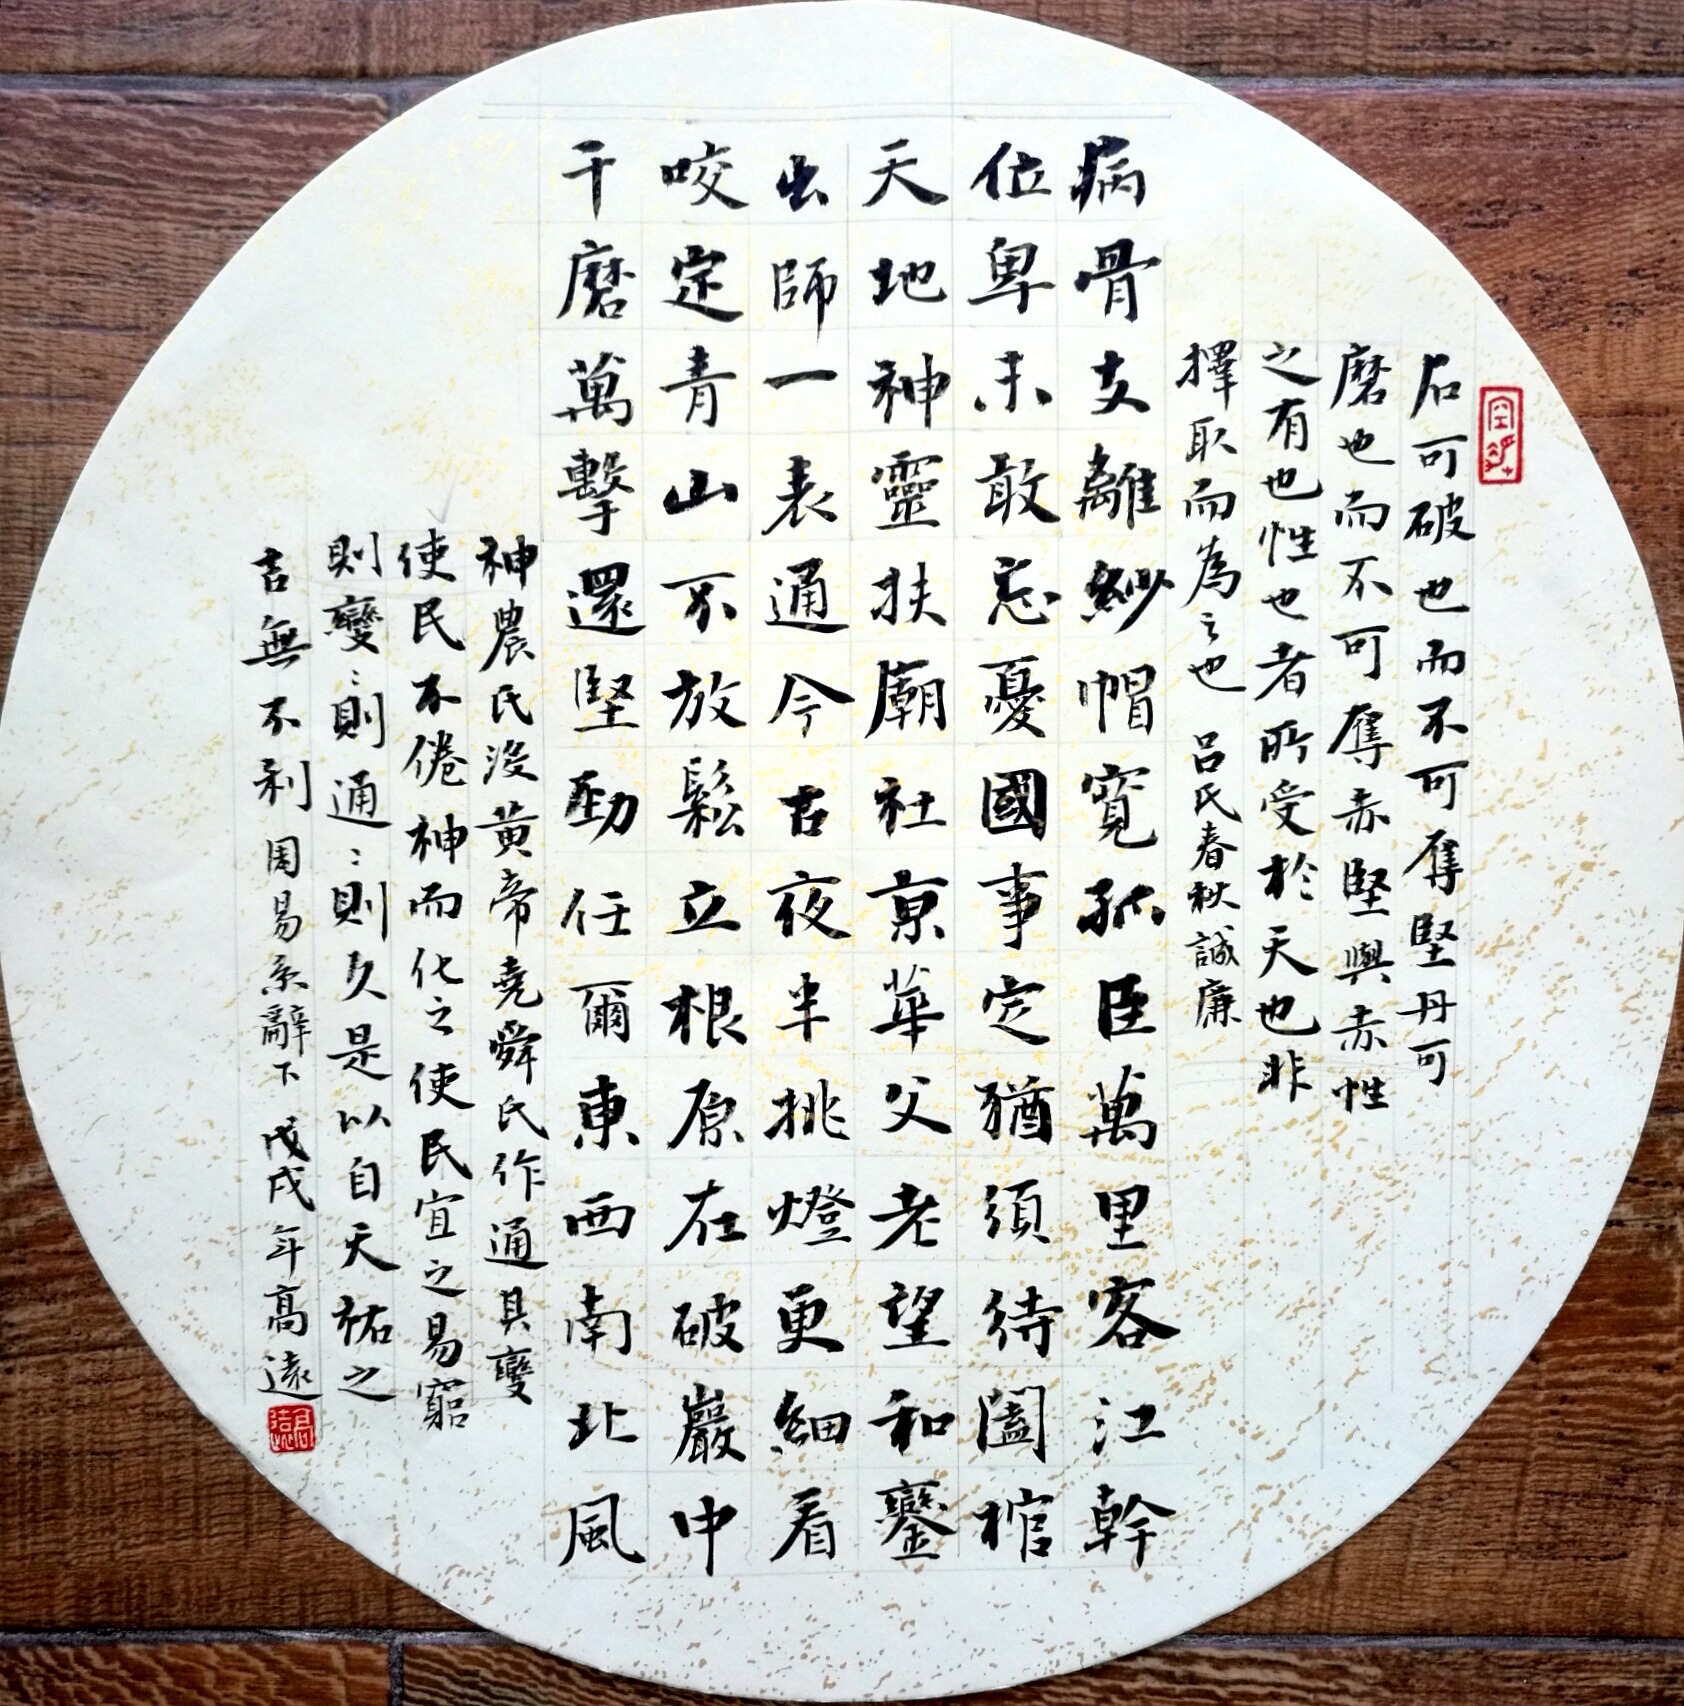 石可破也而不可奪堅丹可
磨也而不可奪赤堅與赤性
之有也性也者所受於天也非
擇取而為之也 呂氏春秋誠廉
病骨支離紗帽寬孤臣萬里客江幹
位卑未敢忘憂國事定猶須待闔棺
天地神靈扶廟社京華父老望和鑾
出師一表通今古夜半挑燈更細看
咬定青山不放鬆立根原在破巖中
千磨萬擊還堅勁任爾東西南北風
神農氏沒黃帝堯舜氏作通其變
使民不倦神而化之使民宜之易窮
則變:則通:則久是以自天祐之
吉無不利 周易系辭下 戊戌年高遠